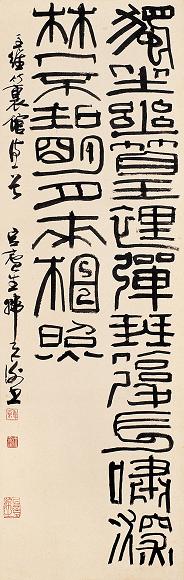 獨坐幽篁裏彈琴復長嘯深
林人不知明月來相照
王維竹裏館詩